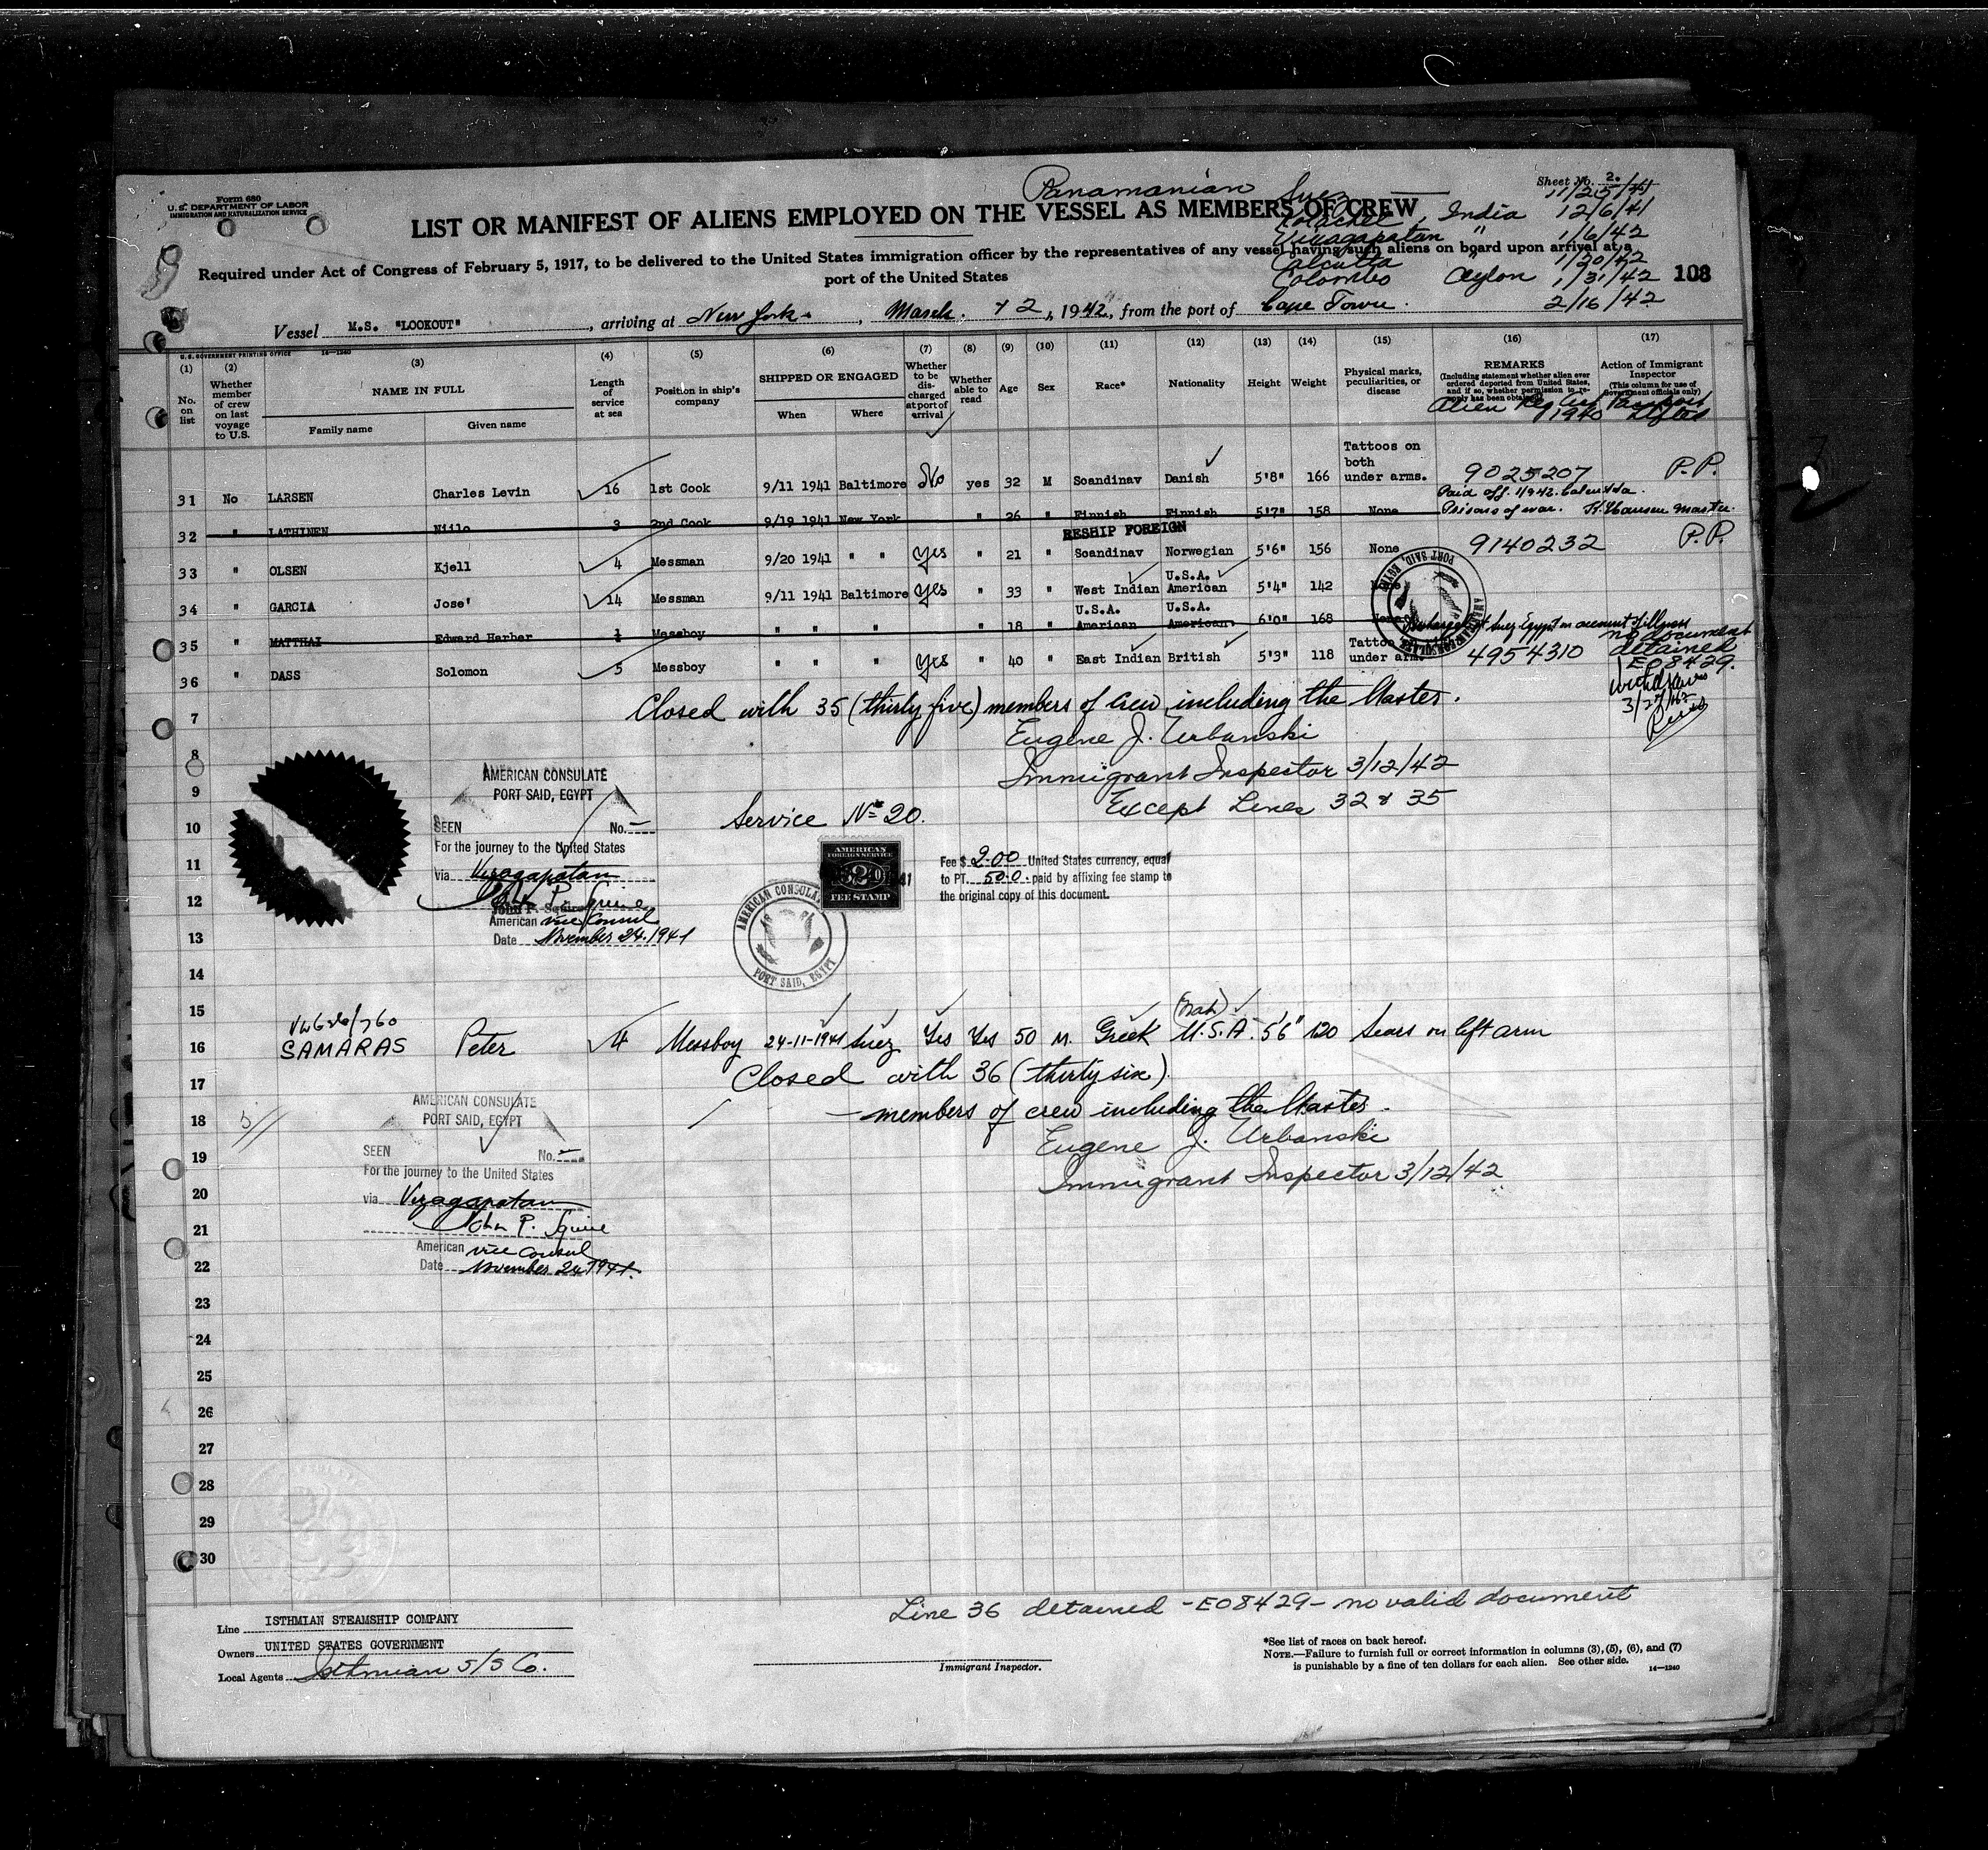 Form 680
U.S. DEPARTMENT OF LABOR
IMMIGRATION AND NATURALIZATION SERVICE
Panamanian
Sheet No. 2.
Suez 11/25/41
LIST OR MANIFEST OF ALIENS EMPLOYED ON THE VESSEL AS MEMBERS OF CREW
India 12/6/41
Vizagapatan " 1/6/42
Required under Act of Congress of February 5, 1917, to be delivered to the United States immigration officer by the representatives of any vessel having such aliens on board upon arrival at a
port of the United States
Calcutta " 1/20/42
Colombo Ceylon 1/31/42
103
Vessel M.S. "LOOKOUT", arriving at New York, March 12, 1942, from the port of Cape Town. 2/16/42
U.S. GOVERNMENT PRINTING OFFICE 14—1240
(1) (2) (3) (4) (5) (6) (7) (8) (9) (10) (11) (12) (13) (14) (15) (16) (17)
No. on list
Whether member of crew on last voyage to U.S.
NAME IN FULL
Family name
Given name
Length of service at sea
Position in ship's company
SHIPPED OR ENGAGED
When
Where
Whether to be discharged at port of arrival
Whether able to read
Age
Sex
Race*
Nationality
Height
Weight
Physical marks, peculiarities, or disease
REMARKS
(Including statement whether alien ever ordered deported from United States, and if so, whether permission to reapply has been obtained)
Action of Immigrant Inspector
(This column for use of Government officials only)
Alien Reg. 1940
Passport
31 No LARSEN Charles Levin 16 1st Cook 9/11 1941 Baltimore No yes 32 M Scandinav Danish 5'8" 166 Tattoos on both under arms. 9025207 P.P.
Paid off. Calcutta.
32 " LATHINEN Niilo 3 2nd Cook 9/19 1941 New York " 26 " Finnish Finnish 5'7" 158 None Prisons of war. K. Hansen Master.
RESHIP FOREIGN
33 " OLSEN Kjell 4 Messman 9/20 1941 " " Yes " 21 " Scandinav Norwegian 5'6" 156 None 9140232 P.P.
34 " GARCIA Jose' 14 Messman 9/11 1941 Baltimore Yes " 33 " West Indian U.S.A. American 5'4" 142 None
35 " MATTHAI Edward Harber 1 Messboy " " " " 18 " U.S.A. American U.S.A. American. 6'0" 168 None Suez Egypt on account of illness
36 " DASS Solomon 5 Messboy " " " Yes " 40 " East Indian British 5'3" 118 Tattoo under arm. 4954310 no document detained E08429.
withdrawn
3/27/42
AMERICAN CONSULATE PORT SAID, EGYPT
7 Closed with 35 (thirty five) members of crew including the Master.
Eugene J. Urbanski
8 Immigrant Inspector 3/12/42
9 Except Lines 32 & 35
AMERICAN CONSULATE
PORT SAID, EGYPT
10 SEEN No. —
Service Nº 20.
For the journey to the United States
11 via Vizagapatan
AMERICAN FOREIGN SERVICE $2 FEE STAMP
Fee $ 2.00 United States currency, equal
to PT. 50.0 paid by affixing fee stamp to
the original copy of this document.
12 John P. Squire
American vice Consul
13 Date November 24. 1941
AMERICAN CONSULATE PORT SAID, EGYPT
14
15
16 SAMARAS Peter 4 Messboy 24-11-1941 Suez Yes Yes 50 M. Greek (Nat) U.S.A. 5'6" 120 Scars on left arm
17 Closed with 36 (thirty six)
18 — members of crew including the Master.
AMERICAN CONSULATE
PORT SAID, EGYPT
Eugene J. Urbanski
19 SEEN No. —
Immigrant Inspector 3/12/42
For the journey to the United States
20 via Vizagapatam
21 John P. Squire
American vice consul
22 Date November 24 1941.
23
24
25
26
27
28
29
30
Line 36 detained - E08429 - no valid document
Line ISTHMIAN STEAMSHIP COMPANY
Owners UNITED STATES GOVERNMENT
Local Agents Isthmian S/S Co.
Immigrant Inspector.
*See list of races on back hereof.
NOTE.—Failure to furnish full or correct information in columns (3), (5), (6), and (7)
is punishable by a fine of ten dollars for each alien. See other side. 14—1240